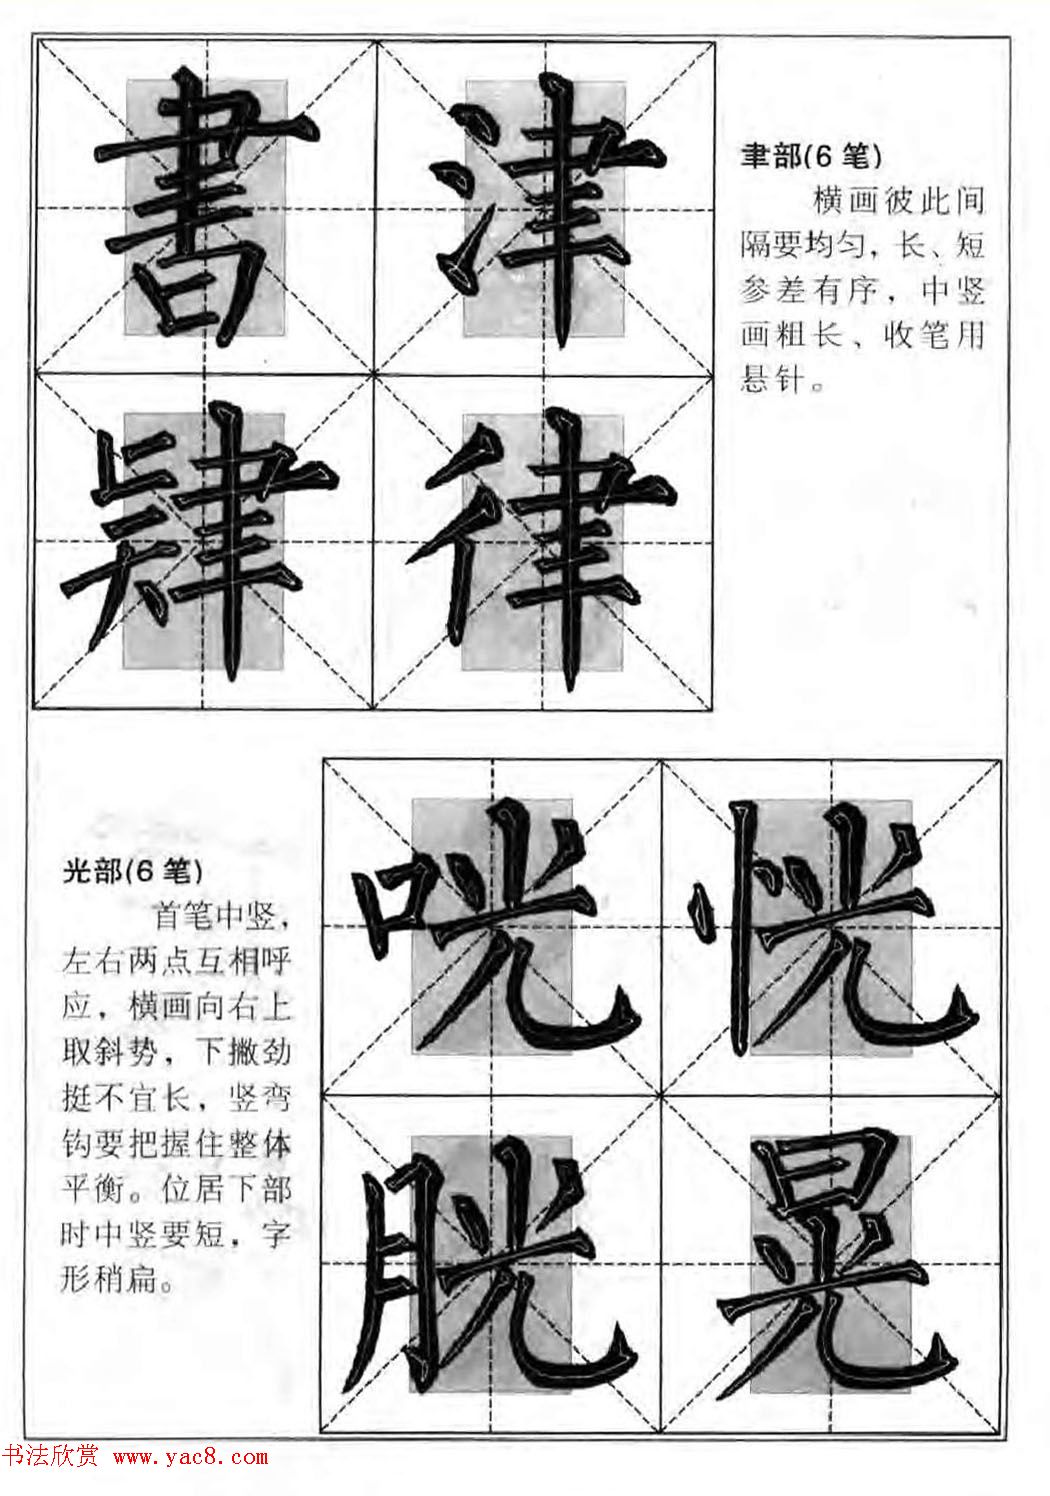 書 津
肄 律
聿部(6笔)
横画彼此间
隔要均匀，长、短
参差有序，中竖
画粗长、收笔用
悬针。
光部(6笔)
首笔中竖，
左右两点互相呼
应，横画向右上
取斜势，下撇劲
挺不宜长，竖弯
钩要把握住整体
平衡。位居下部
时中竖要短，字
形稍扁。
咣 恍
胱 晃
书法欣赏 www.yac8.com